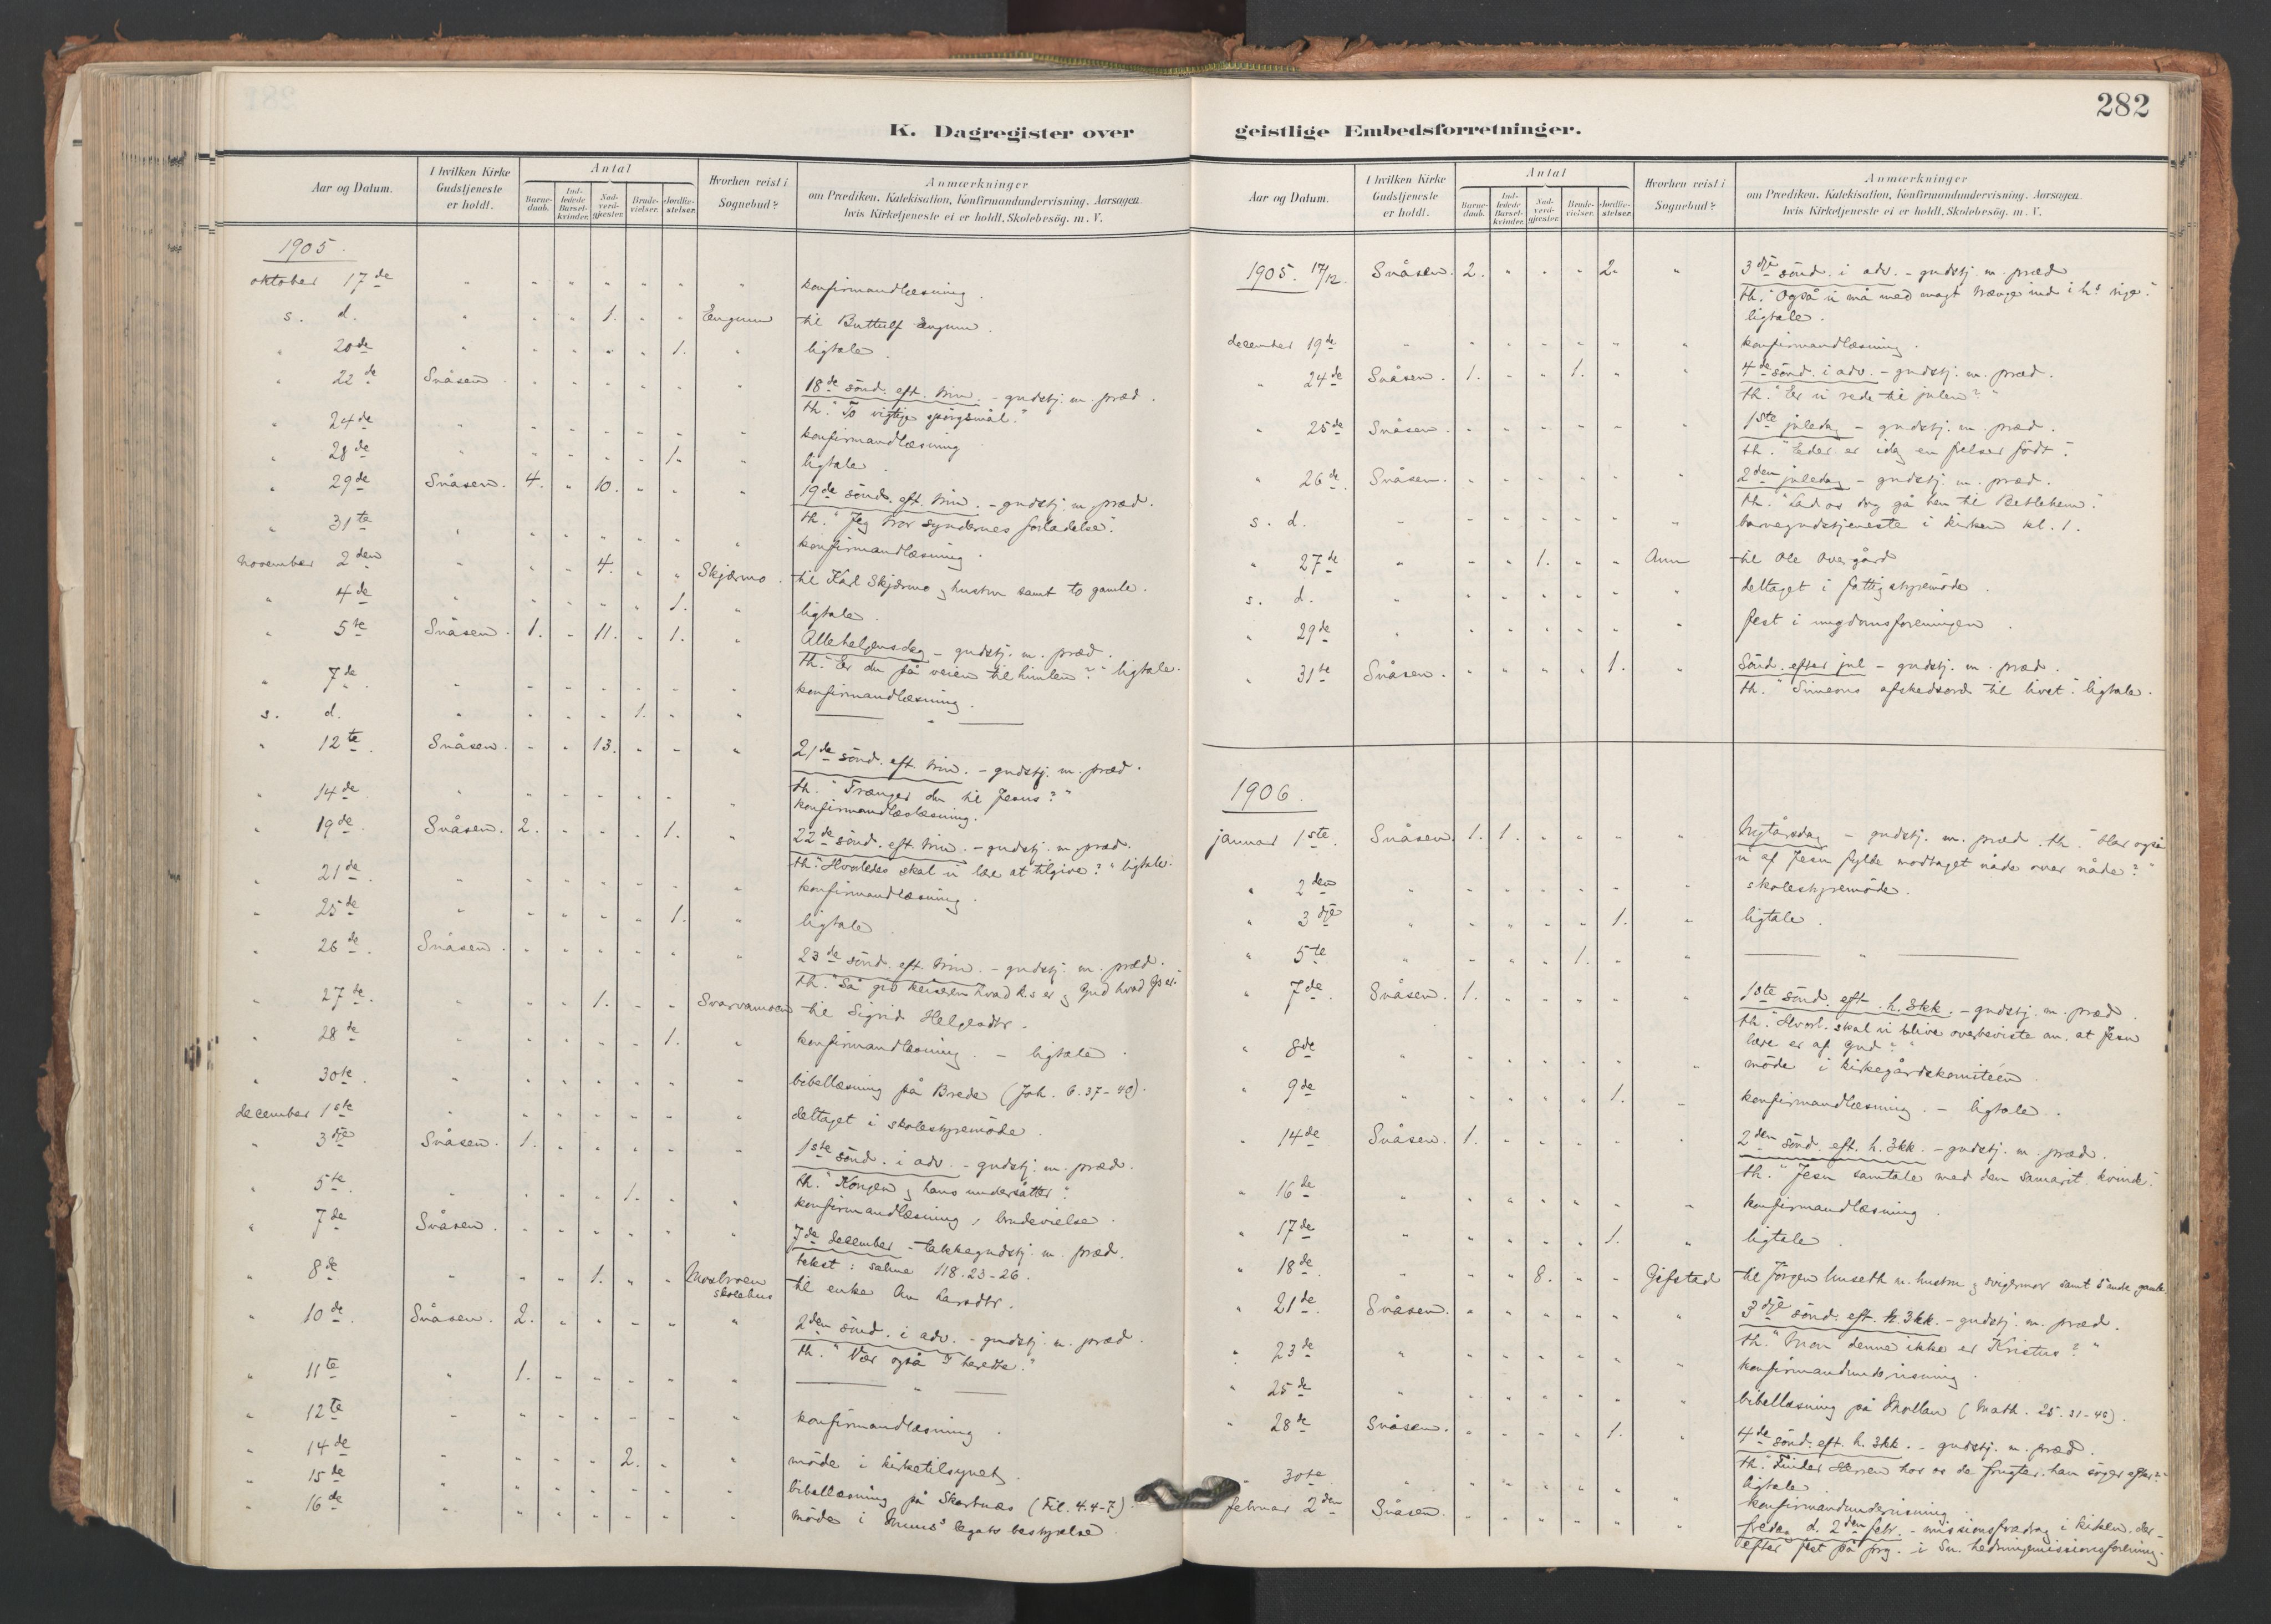 282
K. Dagregister over
geistlige Embedsforretninger.
Aar og Datum.
I hvilken Kirke Gudstjeneste er holdt.
Antal
Barne-daab.
Ind-ledede Barsel-kvinder.
Nad-verd-gjester.
Brude-vielser.
Jordfæ-stelser.
Hvorhen reist i Sognebud?
Anmærkninger
om Prædiken, Katekisation, Konfirmandundervisning, Aarsagen
hvis Kirketjeneste ei er holdt, Skolebesøg. m. V.
1905.
oktober 17de " " " " " " " konfirmandlæsning.
s. d. " " " 1. " " Engum til Buttulf Engum.
" 20de " " " " " 1. " ligtale.
" 22de Snåsen. " " " " " " 18de sönd. eft. trin. - gudstj. m. præd.
th. "To vigtige spörgsmål."
" 24de " " " " " " " konfirmandlæsning
" 28de " " " " " 1. " ligtale.
" 29de Snåsen. 4. " 10. " " " 19de sönd. eft. trin. - gudstj. m. præd.
th. "Jeg tror syndernes forladelse".
" 31te " " " " " " " konfirmandlæsning.
november 2den " " " 4. " " Skjærmo. til Karl Skjærmo & hustru samt to gamle.
" 4de " " " " " 1. " ligtale.
" 5te Snåsen. 1. " 11. " 1. " Allehelgensdag - gudstj. m. præd.
th. "Er du på veien til himlen?" ligtale.
" 7de " " " " " " " konfirmandlæsning.
s. d. " " " " 1. " " — " —
" 12te. Snåsen. " " 13. " " " 21de sönd. eft. trin. - gudstj. m. præd.
th. "Trænger du til Jesus?"
" 14de " " " " " " " konfirmandlæsning.
" 19de. Snåsen. 2. " " " 1. " 22de sönd. eft. trin. - gudstj. m. præd.
th. "Hvorledes skal vi lære at tilgive?" ligtale.
" 21de. " " " " " " " konfirmandlæsning.
" 25de " " " " " 1. " ligtale
" 26de. Snåsen. " " " " " " 23de sönd. eft. trin. - gudstj. m. præd.
th. "Så giv keiseren hvad k.s er & Gud hvad Gs er."
" 27de. " " " 1. " " Svarvamoen til Sigrid Helgesdtr.
" 28de " " " " " 1. " konfirmandlæsning. - ligtale.
" 30te. " " " " " " " bibellæsning på Brede (Joh. 6. 37-40).
december 1ste " " " " " " " deltaget i skolestyremöde.
" 3dje Snåsen. 1. " " " " " 1ste sönd. i adv. - gudstj. m. præd.
th. "Kongen & hans undersåtter".
" 5te. " " " " 1. " " konfirmandlæsning, brudevielse.
" 7de Snåsen. " " " " " " 7de december - takkegudstj. m. præd.
tekst: salme 118. 23-26.
" 8de " " " 1. " " skolehus til enke
" 10de. Snåsen. 2. " " " " " 2den sönd. i adv. - gudstj. m. præd.
th. "Vær også I beredte."
" 11te " 1. " " " " " — " —
" 12te " " " " " " " konfirmandlæsning.
" 14de " " " " 2. " " möde i kirketilsynet.
" 15de " " " " " " " bibellæsning på (Fil. 4. 4-7).
" 16de " " " " " " " möde i legats bestyrelse.
Aar og Datum.
I hvilken Kirke Gudstjeneste er holdt.
Antal
Barne-daab.
Ind-ledede Barsel-kvinder.
Nad-verd-gjester.
Brude-vielser.
Jordfæ-stelser.
Hvorhen reist i Sognebud?
Anmærkninger
om Prædiken, Katekisation, Konfirmandundervisning, Aarsagen
hvis Kirketjeneste ei er holdt, Skolebesøg. m. V.
1905. 17/12. Snåsen. 2. " " " 2. " 3dje sönd. i adv. - gudstj. m. præd
th. "Også vi må med magt trænge ind i h.s rige."
ligtale.
december 19de " " " " " " " konfirmandlæsning.
" 24de Snåsen. 1. " " 1. " " 4de sönd. i adv. - gudstj. m. præd.
th. "Er vi rede til julen?"
" 25de Snåsen. " " " " " " 1ste juledag - gudstj. m. præd.
th. "Eder er idag en frelser födt".
" 26de. Snåsen. " " " " " " 2den juledag - gudstj. m. præd.
th. "Lad os dog gå hen til Bethlehem."
s. d. " " " " " " " barnegudstjeneste i kirken kl. 1.
" 27de " " " 1. " " til Ole Overgård
s. d. " " " " " " " deltaget i fattigstyremöde.
" 29de " " " " " " " fest i ungdomsforeningen.
" 31te Snåsen. " " " " 1. " Sönd. efter jul - gudstj. m. præd.
th. "Simeons afskedsord til livet". ligtale.
1906.
januar 1ste. Snåsen. 1. 1. " " " " Nytårsdag - gudstj. m. præd. th. "Har også
vi af Jesu fylde modtaget nåde over nåde?"
" 2den " " " " " " " skolestyremöde.
" 3dje " " " " " 1. " ligtale.
" 5te " " " " 1. " " — " —
" 7de. Snåsen. 1. " " " " " 1ste sönd. eft. h. 3kk. - gudstj. m. præd.
th. "Hvorl. skal vi blive overbeviste om, at Jesu
lære er af Gud?"
" 8de " " " " " " " möde i kirkegårdskomiteen.
" 9de " " " " " 1. " konfirmandlæsning. - ligtale.
" 14de Snåsen. 1. " " " " " 2den sönd. eft. h. 3kk. - gudstj. m. præd.
th. "Jesu samtale med den samarit. kvinde."
" 16de " " " " " " " konfirmandlæsning.
" 17de " " " " " 1. " ligtale.
" 18de. " " " 8. " " Gifstad til Jörgen Huseth m. hustru & svigermor samt 5 andre gamle.
" 21de. Snåsen. " " " " " " 3dje sönd. eft. h. 3kk. - gudstj. m. præd.
th. "Mon denne ikke er Kristus?"
" 23de " " " " " " " konfirmandundervisning.
" 25de " " " " " " " bibellæsning på (Math. 25. 31-46).
" 28de Snåsen. " " " " 1. " 4de sönd. eft. h. 3kk. - gudstj. m. præd.
th. "Finder Herren hos os de frugter, han söger efter?"
ligtale.
" 30te " " " " " " " konfirmandundervisning
februar 2den Snåsen. " " " " " " fredag d. 2den febr. - missionsforedrag i kirken, der-
efter fest på prg. i Sn. hedningemissionsforening.